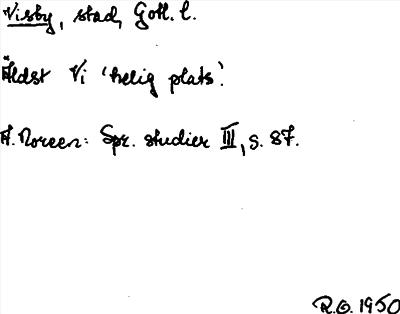 Visby, stad, Gotl. l.
Äldst Vi 'helig plats'.
A. Noreen: Spr. studier III, s. 87.
R.O. 1950